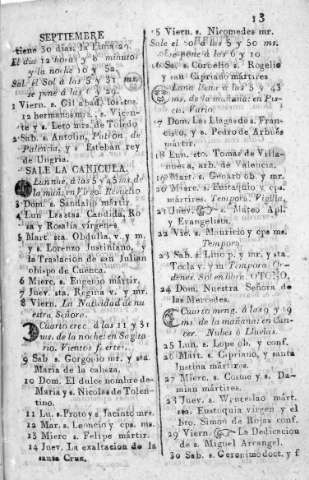 13
SEPTIEMBRE
tiene 30 dias, la Luna 29.
El dia 12 horas y 8 minutos
y la noche 10 y 52
Sal. el Sol á las 5 y 31 ms.
se pone á las 6 y 29.
1 Viern. s. Gil abad. los stos.
12 hermanos ms. s. Vicen-
te y s. Leto mrs. de Toledo
2 Sab. s. Antolin, Patron de
Palencia, y s. Esteban rey
de Ungria.
SALE LA CANICULA.
Lun. nue. á las 5 y 45 ms. de
la mañ. en Virgo. Revuelto
3 Dom. s. Sandalio mártir.
4 Lun. Las stas. Candida, Ro-
sa y Rosalia vírgenes
5 Mart. sta. Obdulia, v. y m.
y s. Lorenzo Justiniano, y
la Traslacion de san Julian
obispo de Cuenca.
6 Mierc. s. Eugenio mártir.
7 Juev. sta. Regina v. y mr.
8 Viern. La Natividad de nu
estra Señora.
Cuarto crec. á las 11 y 31
ms. de la noche en Sagita
rio. Vientos fuertes.
9 Sab s. Gorgonio mr. y sta.
Maria de la cabeza,
10 Dom. El dulce nombre de
Maria y s. Nicolas de Tolen-
tino.
11 Lu. s. Proto y s. Jacinto mrs.
12 Mar. s. Leoncio y cps. ms.
13 Mierc s. Felipe mártir.
14 Juev. La exaltacion de la
santa Cruz.
15 Viern. s. Nicomedes mr.
Sale el sol á las 5 y 50 ms.
se pone á las 6 y 10
16 Sa. s. Cornelio s. Rogelio
y san Cipriano mártires
Luna llena á las 5 y 43
ms. de la mañana en Pis-
cis. Vario.
17 Dom. Las Llagas de s. Fran-
cisco, y s. Pedro de Arbués
mártir.
18 Lun. sto. Tomas de Villa-
nueva, arb. de Valencia.
19 Mart. s. Genaro ob. y mr.
20 Mierc. s. Eustaquio y cps.
mártires. Tempora. Vigilia.
21 Juev. s. Mateo Apl.
y Evangelista.
22 Vie. s. Mauricio y cps ms.
Tempora.
23 Sab. s. Lino p. y mr. y sta.
Tecla v. y m Tempora. Or-
denes. Sol en libra. OTOÑO.
24 Dom. Nuestra Señora de
las Mercedes.
Cuarto meng. á las 9 y 19
ms. de la mañana; en Can-
cer. Nubes ó Lluvias.
25 Lun. s. Lope ob. y conf.
26 Mart. s. Cipriano, y santa
Justina mártires
27 Mierc. s. Cosme y s. Da-
mian mártires.
28 Juev. s. Wenceslao márt.
sta. Eustoquia virgen y el
bto. Simon de Rojas conf.
29 Viern. La Dedicacion
de s. Miguel Arcangel.
30 Sab. s. Geronimo doct. y f